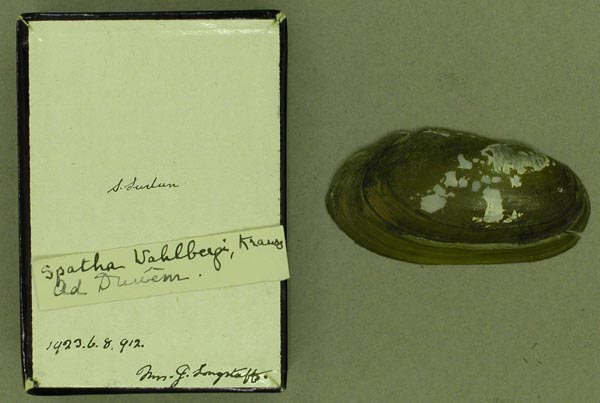 S. Sudan
Spatha Wahlbergi, Krauss
Ad Duêm.
1923.6.8.912.
Mrs. J. Longstaff.